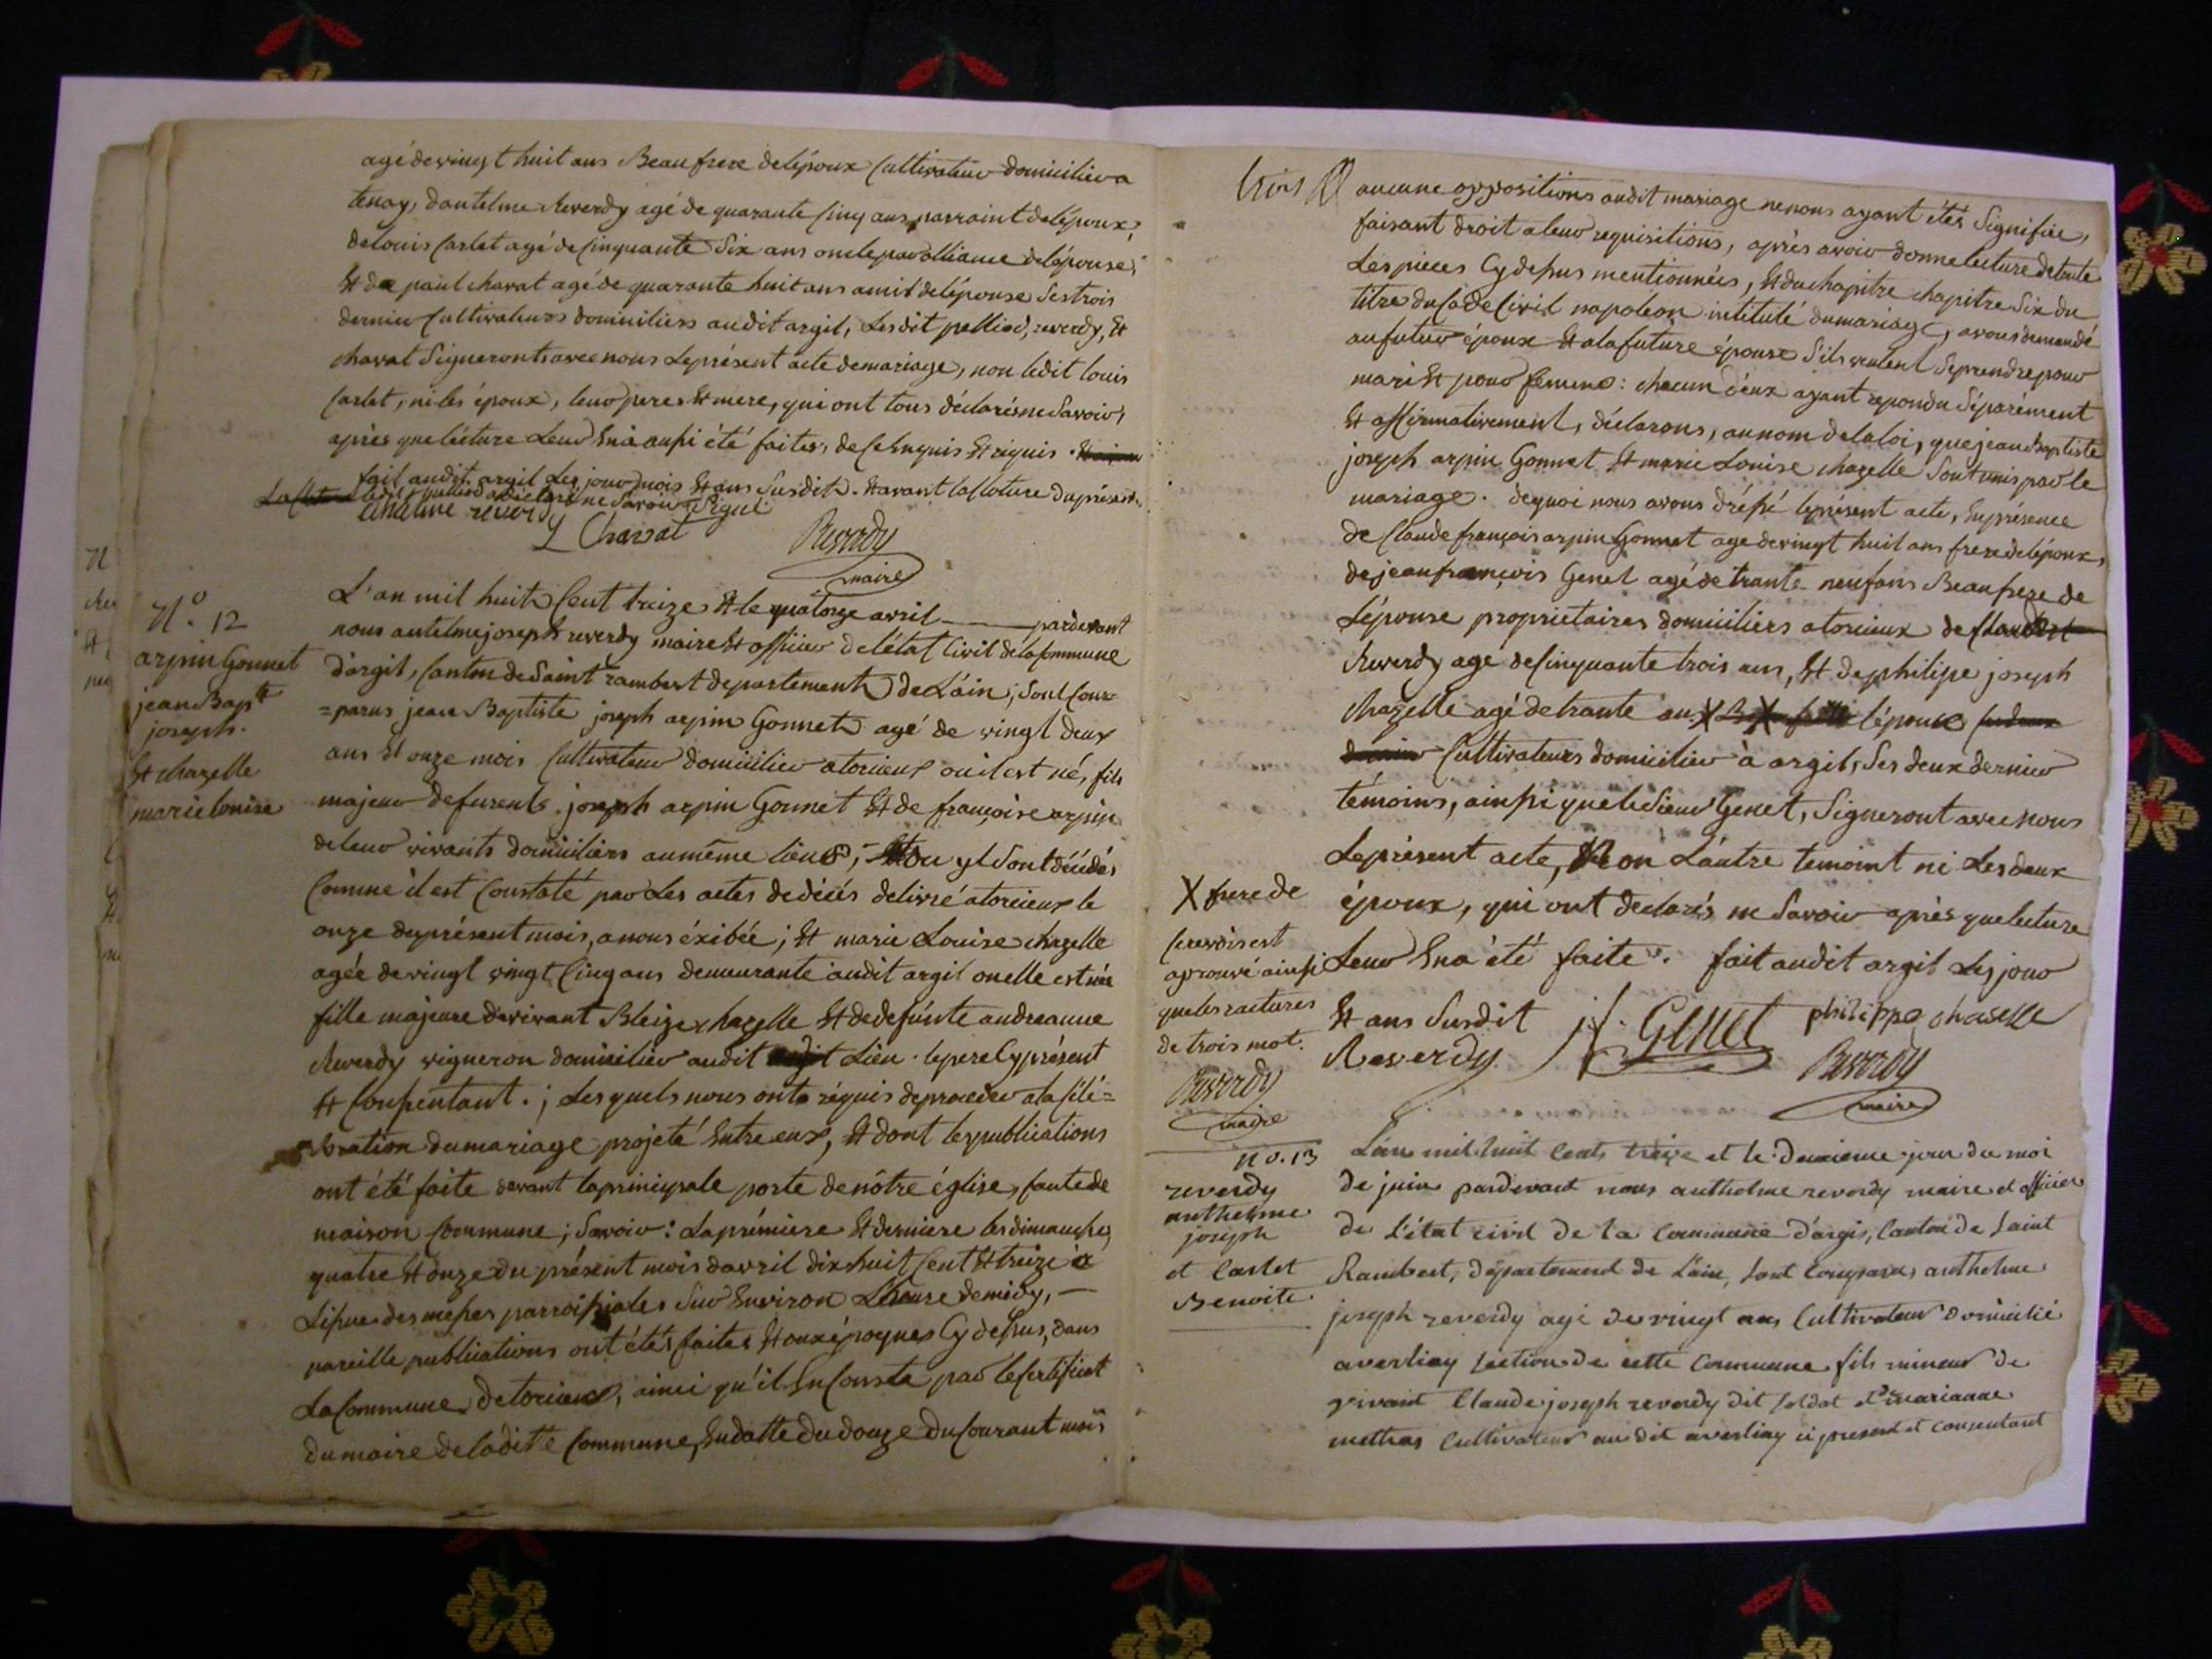 agé de vingt huit ans Beau frere de lépoux Cultivateur domicilier a
tenay, dantelme Reverdy agé de quarante Cinq ans parraint de lépoux,
de louis Carlet agé de Cinquante Six ans oncle par alliance de lépouse,
Et de paul chavat agé de quarante huit ans amit de lépouse Ses trois
dernier Cultivateurs domiciliers audit argil, Lesdit palliod, reverdy, Et
chavat Signeronts avec nous Le présent acte de mariage, non ledit louis
Carlet, ni les époux, leur peres Et mere, qui ont tous déclarés ne Savoir,
après que lecture Leur En a aussi été faites, de Ce Enquis Et riquis.
fait audit argil Les jour mois Et ans Susdit. Et avant la Cloture du présent
ledit palliod a déclaré ne Savoir Signé
anthelme reverdy
L Chavat
Reverdy
maire
N.° 12
arpin Gonnet
jean Bapte
joseph.
Et chazelle
marie louise
L'an mil huit Cent treize Et le quatorze avril pardevant
nous antelme joseph reverdy maire Et officier de létat Civil de la Commune
d'argil, Canton de Saint rambert departement de L'ain; Sont Com=
=parus jean Baptiste joseph arpin Gonnet agé de vingt deux
ans Et onze mois Cultivateur domicilier a torcieux ou il est né, fils
majeur de furents joseph arpin Gonnet Et de françoise arpin
de leur vivants domiciliers au même lieu, ou yl Sont décédés
Comme il est Constaté par Les actes de décés delivré a torcieux le
onze du présent mois, a nous éxibée; Et marie Louise chazelle
agée de vingt vingt Cinq ans demeurante audit argil ou elle est née
fille majeure de vivant Bleize chazelle Et de defünte andreanne
Reverdy vigneron domicilier audit Lieu. le pere Cy présent
Et Consentant.; Les quels nous onts réquis de proceder a la Célé=
bration du mariage projeté Entre eux, Et dont les publications
ont été faite devant la principale porte de nôtre église, faute de
maison Commune; Savoir: La prémiere Et derniere les dimanches
quatre Et onze du présent mois d'avril dix huit Cent Et treize a
Lissue des messes parroissiales Sur Environ L'heure de midy,
pareille publications ont étés faites Et aux époques Cy dessus, dans
La Commune de torcieux, ainsi qu'il En Conste par le Certificat
du maire de ladite Commune, En datte du douze du Courant mois
trois
aucune oppositions audit mariage ne nous ayant étés Signifiée,
faisant droit a leur requisitions, après avoir donne lecture de toute
Les pieces Cy dessus mentionnées, Et du chapitre chapitre Six du
titre du Code Civil napoleon intitulé du mariage, avons demandé
au futur époux Et a la future épouse S'ils veulent Se prendre pour
mari Et pour femme: chacun d'eux ayant repondu Séparément
Et affirmativement, déclarons, au nom de la loi, que jean Baptiste
joseph arpin Gonnet Et marie Louise chazelle Sont unis par le
mariage. de quoi nous avons dréssé le présent acte, En présence
de Claude françois arpin Gonnet age de vingt huit ans frere de lépoux,
de jean françois Genet agé de trante neuf ans Beau frere de
L'épouse proprietaires domiciliers a torcieux de Claude
Reverdy age de Cinquante trois ans, Et de philipe joseph
chazelle agé de trante ans X lépouse
Cultivateurs domicilier à argil, Ses deux dernier
témoins, ainssi que le Sieur Genet, Signeront avec nous
Le présent acte, Non L'autre temoint ni Les deux
époux, qui ont declarés ne Savoir après que lecture
Leur En a été faite. fait audit argil Les jour
Et ans Susdit
X frere de
Ce
aprouvé ainssi
que les ratures
de trois mot.
Reverdy
maire
Reverdy
j. f. GENET
philippe chaselle
Reverdy
maire
no. 13
reverdy
anthelme
joseph
et Carlet
Benoite
L'an mil huit Cents treize et le deuxieme jour du moi
de juin pardevant nous anthelme reverdy maire et officier
de L'état civil de la Commune d'argis, Canton de Saint
Rambert, département de L'ain, Sont Comparus anthelme
joseph reverdy agé de vingt ans Cultivateur domicilié
averliay Section de cette Commune fils mineur de
vivant Claude joseph reverdy dit Soldat et marianne
methas Cultivateur audit averliay ci present et consentant